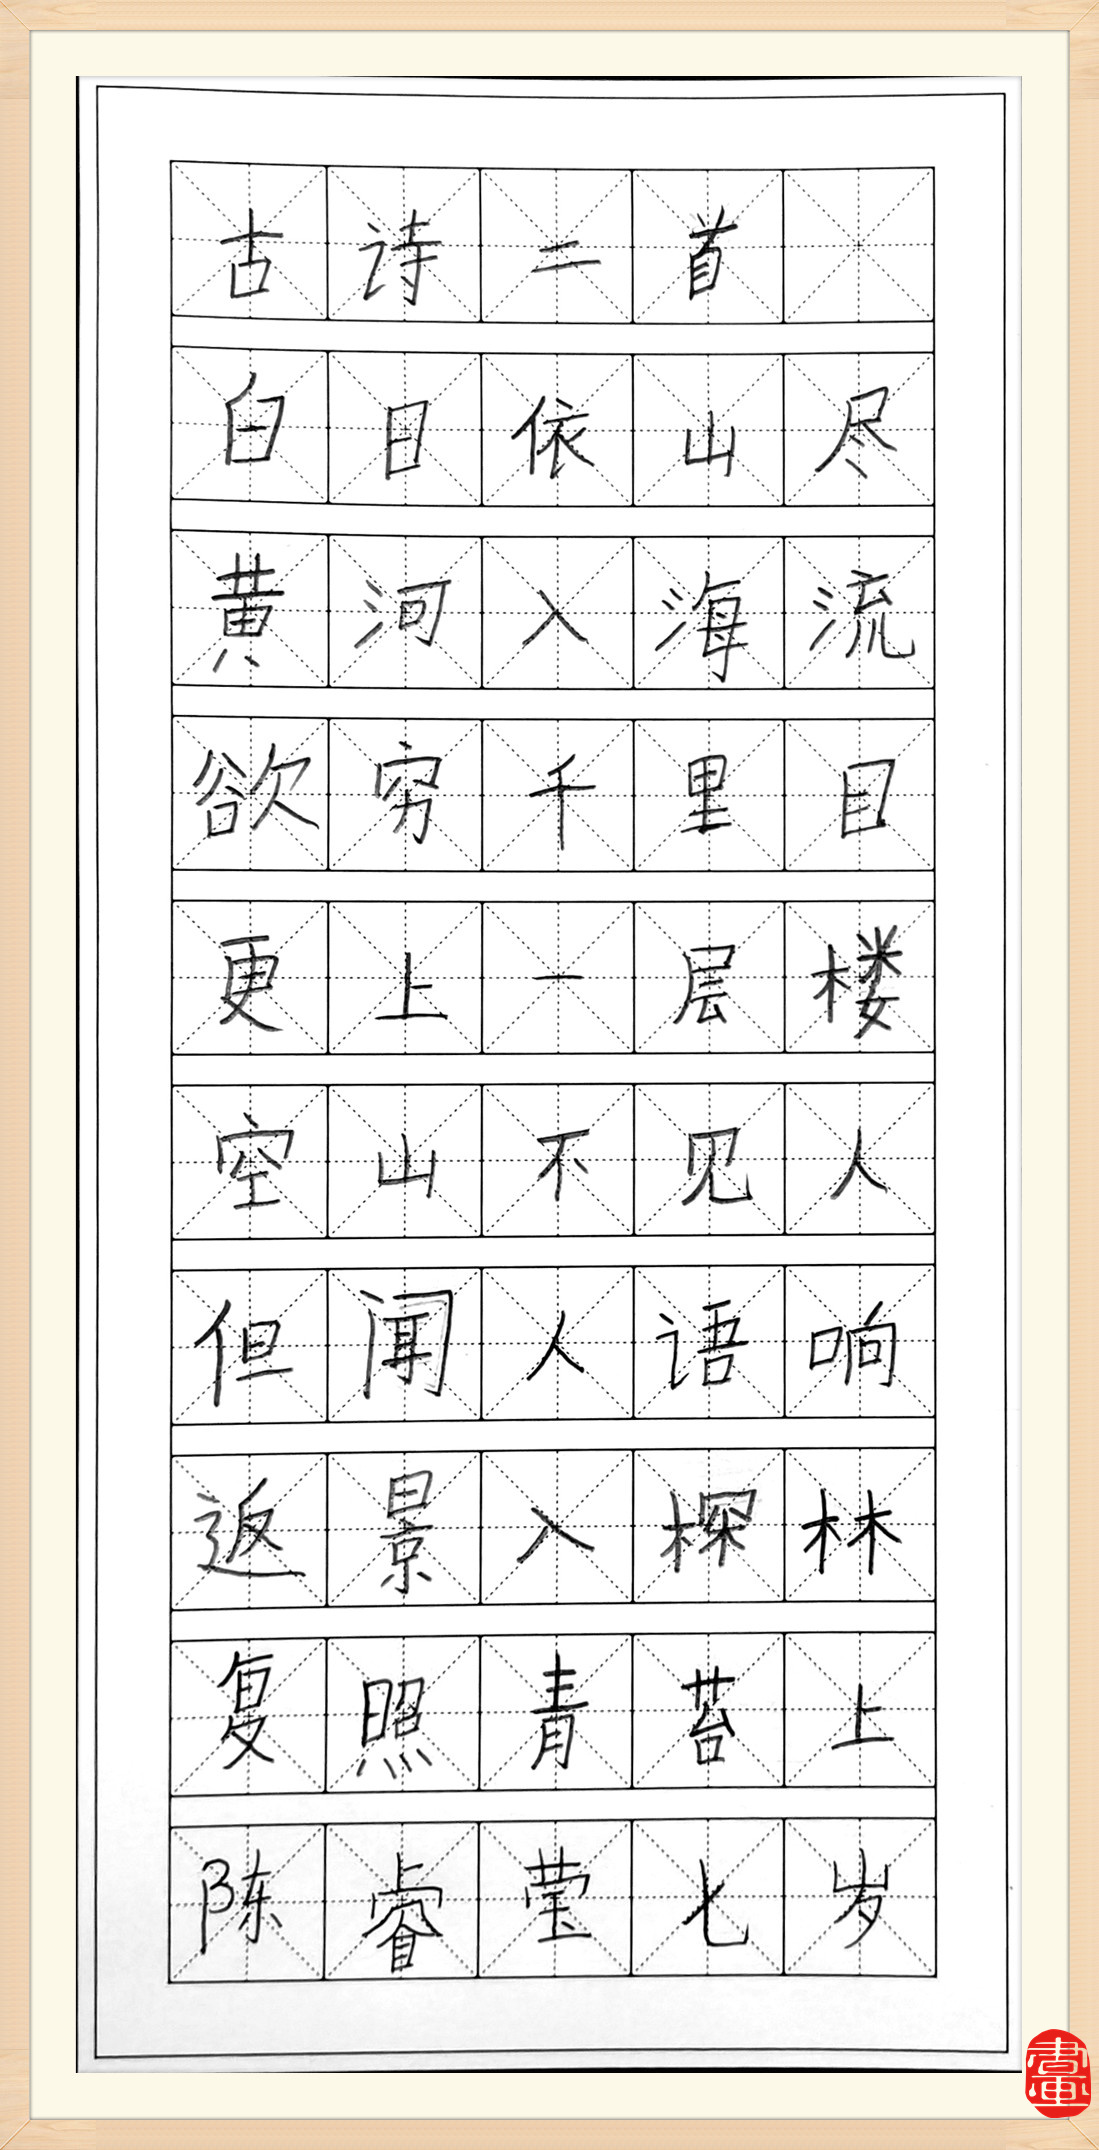 古诗二首
白日依山尽
黄河入海流
欲穷千里目
更上一层楼
空山不见人
但闻人语响
返景入探林
复照青苔上
陈睿莹七岁
畫